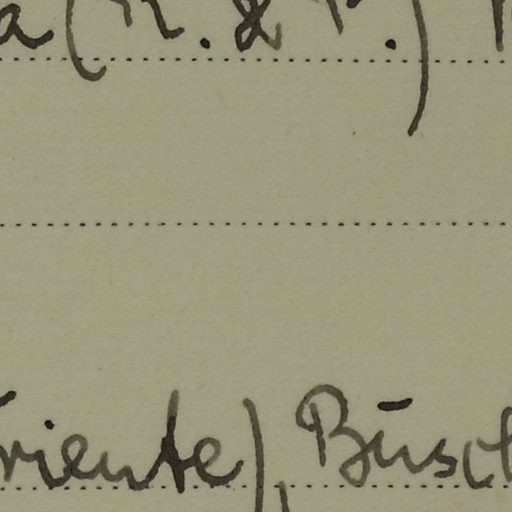 a (R. & P.)
riente), Büsch